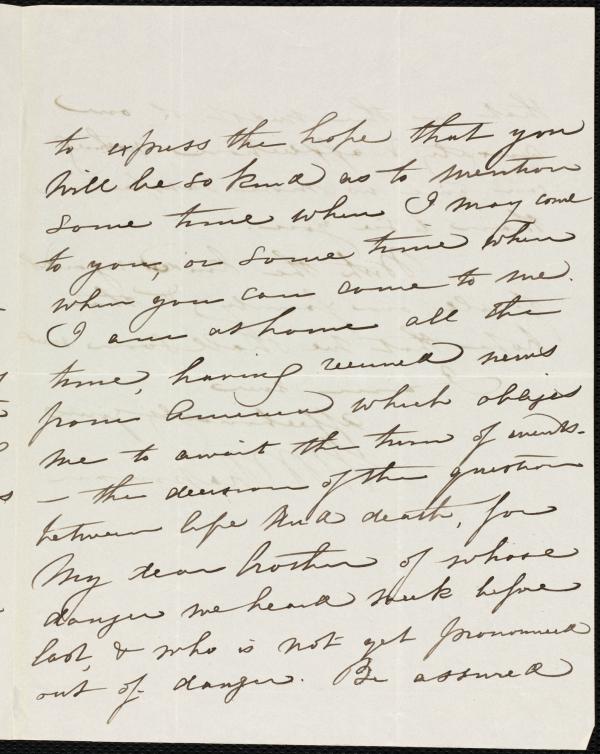 to express the hope that you
will be so kind as to mention
some time when I may come
to you, or some time when
when you can come to me.
I am at home all the
time, having received news
from America which obliges
me to await the turn of events -
- the decision of the question
between life and death, for
my dear brother of whose
danger we heard week before
last, & who is not yet pronounced
out of danger. Be assured